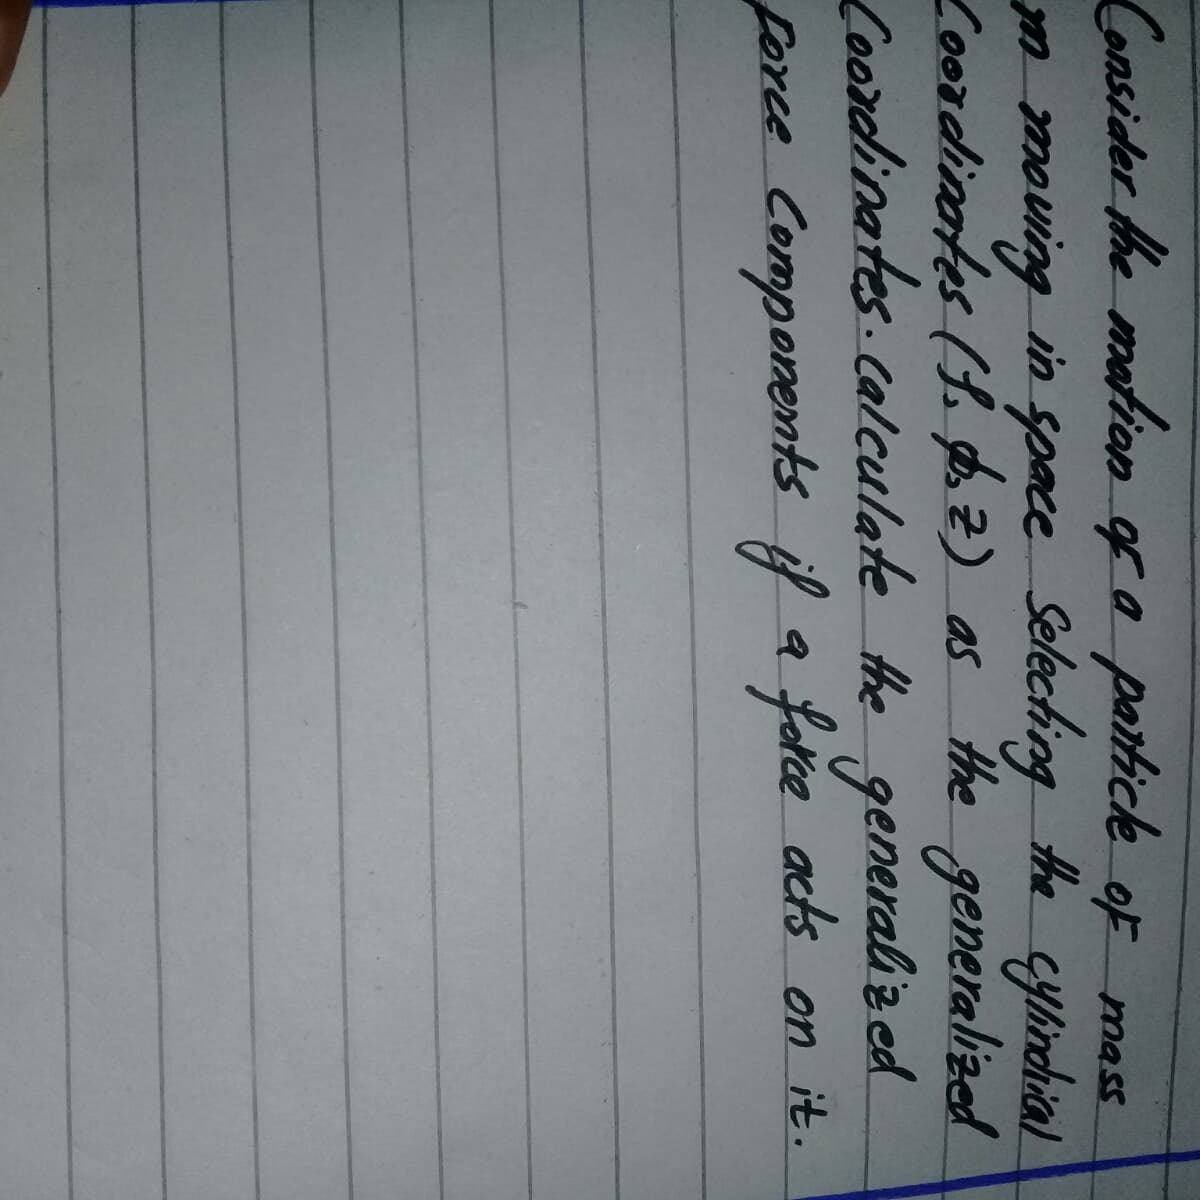 Consider the motion of a particle of mass
m moving in space Selecting the cylindrical
Coordinates (ρ, ϕ, z) as the generalized
Coordinates. Calculate the generalized
force Components if a force acts on it.